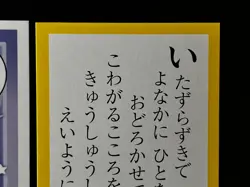 いたずらずきで
よなかに ひとを
おどろかせて
こわがるこころを
きゅうしゅうし
えいように